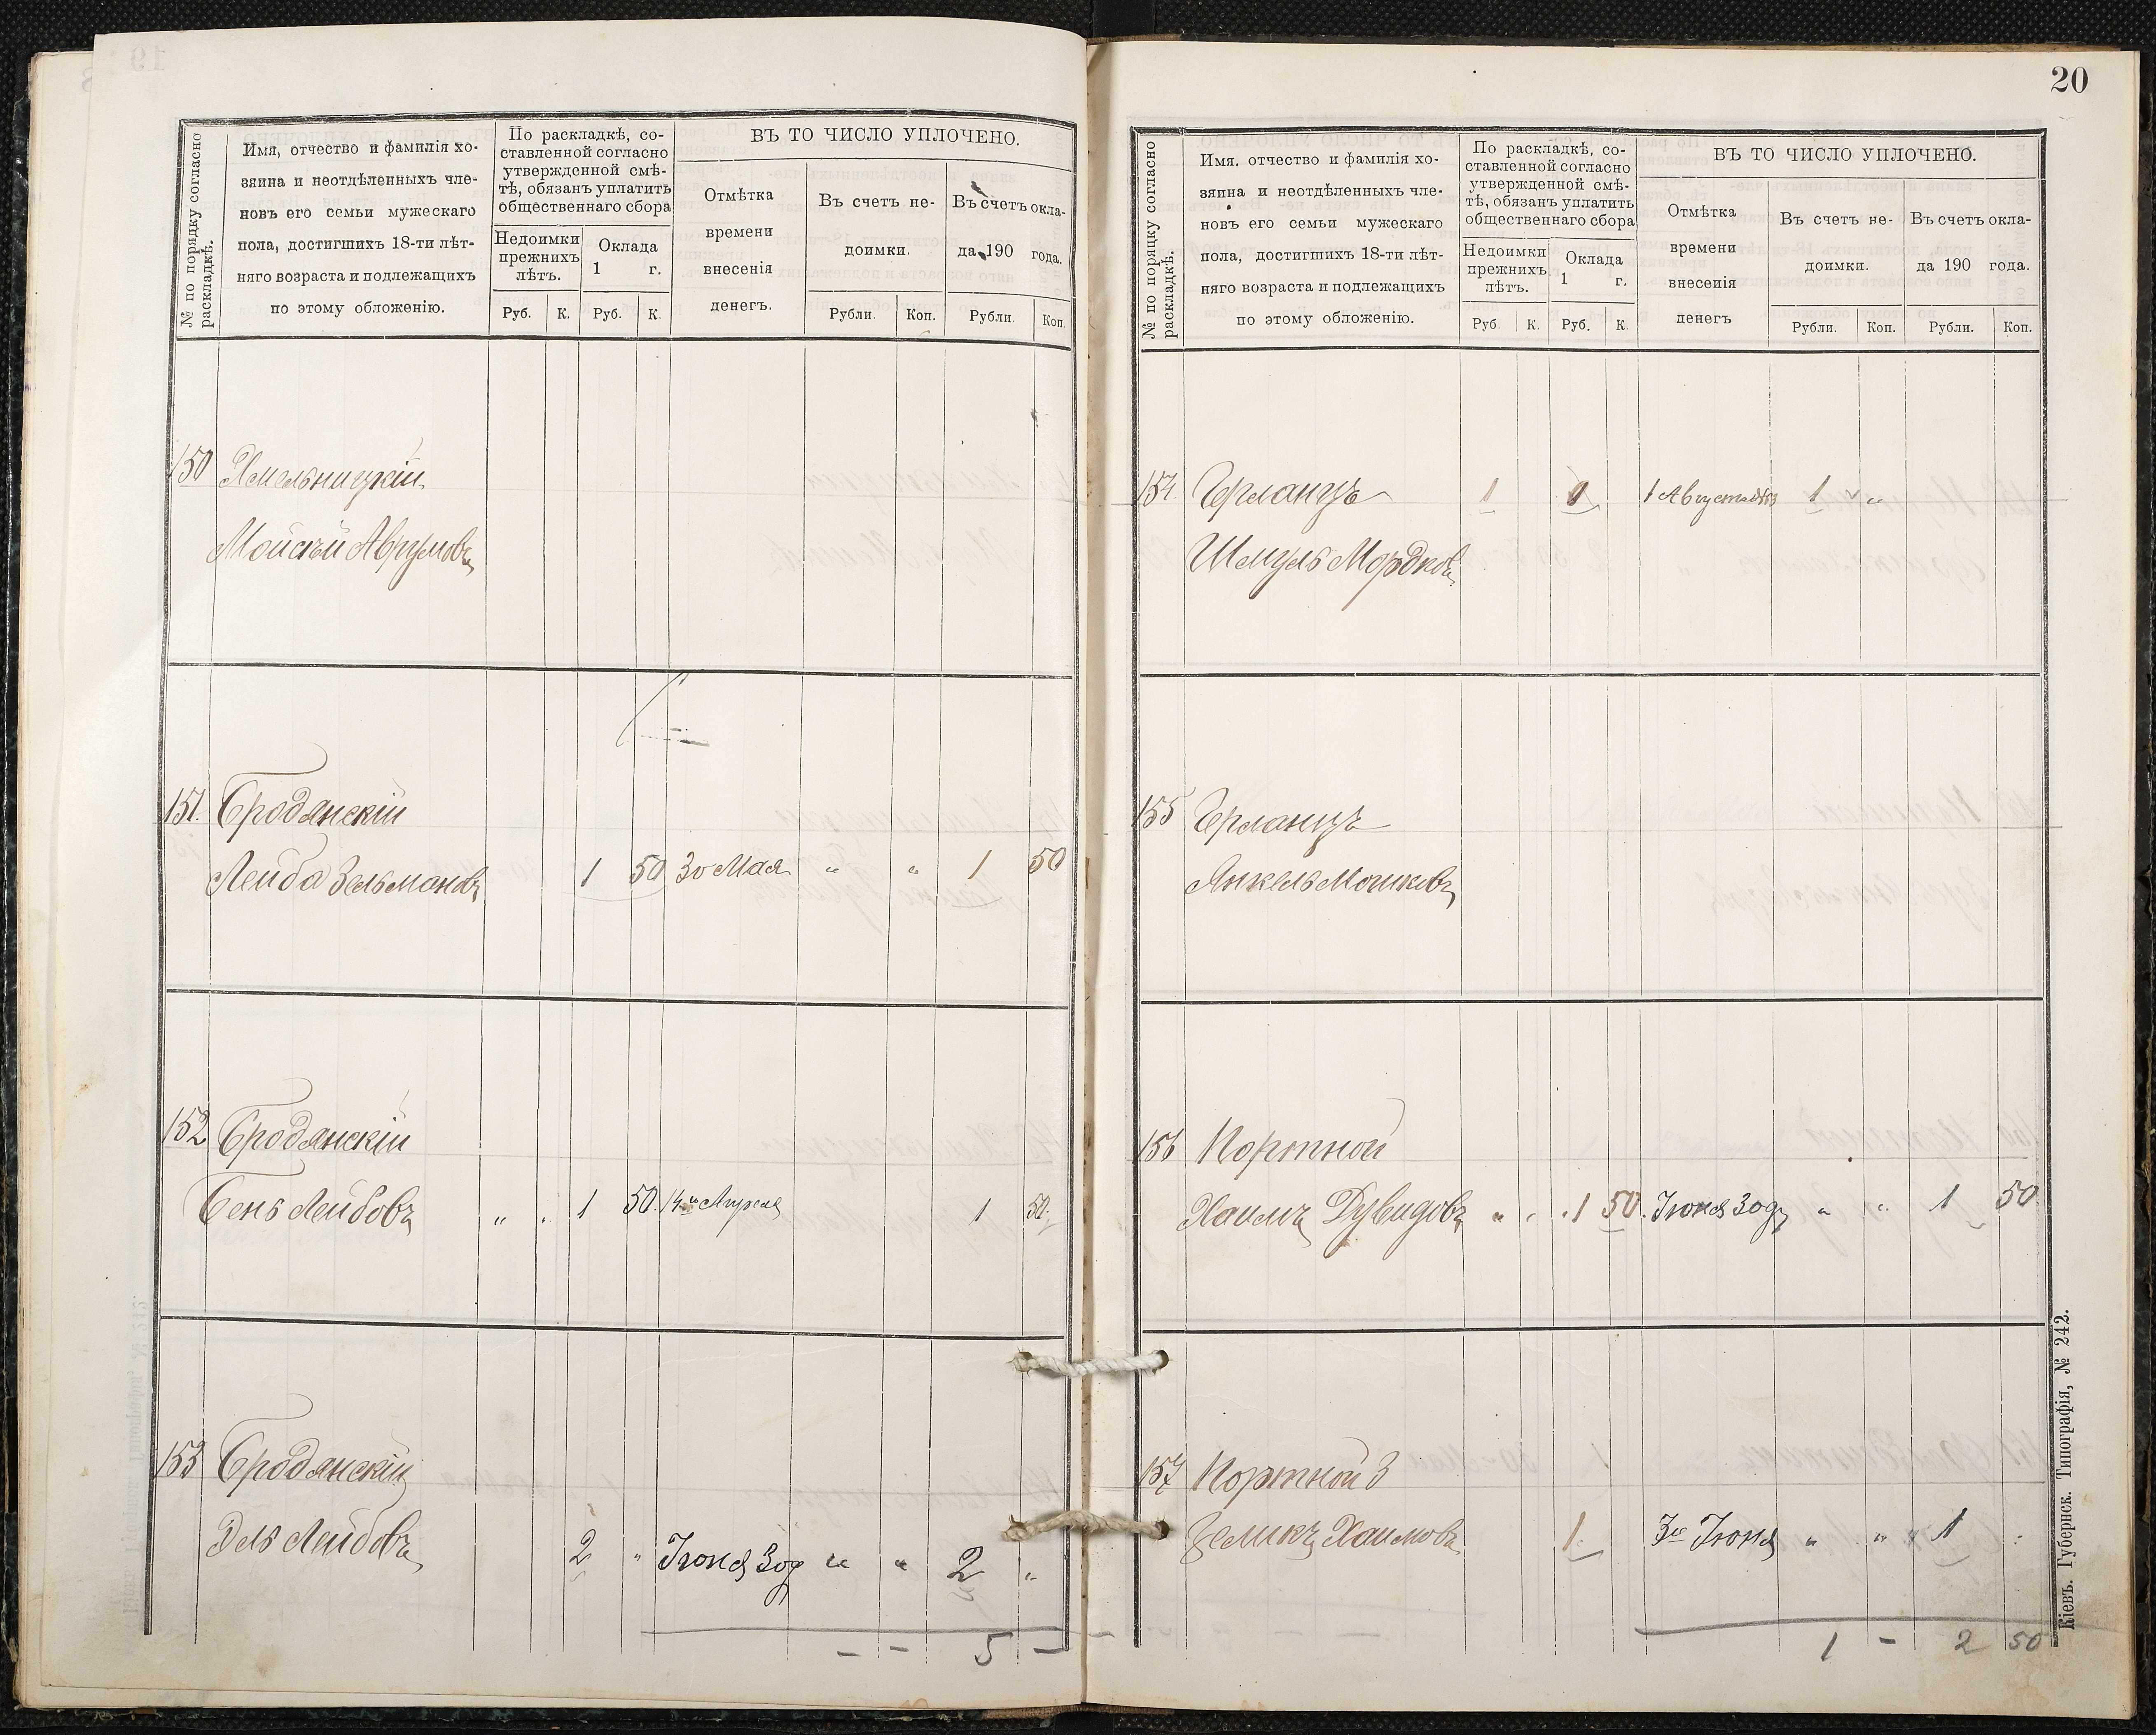 № по порядку согласно
раскладкѣ.
Имя, отчество и фамилія хо-
зяина и неотдѣленныхъ чле-
новъ его семьи мужескаго
пола, достигшихъ 18-ти лѣт-
няго возраста и подлежащихъ
по этому обложенію.
По раскладкѣ, со-
ставленной согласно
утвержденной смѣ-
тѣ, обязанъ уплатить
общественнаго сбора
Недоимки
прежнихъ
лѣтъ.
Оклада
1 г.
Руб. К. Руб. К.
ВЪ ТО ЧИСЛО УПЛОЧЕНО.
Отмѣтка
времени
внесенія
денегъ.
Въ счетъ не-
доимки.
Въ счетъ окла-
да 190 года.
Рубли. Коп. Рубли. Коп.
150 Хмельницкій
Мойсѣй Аврумовъ
151. Бродянскій
Лейба Зельмановъ 1 50 30 Мая " " 1 50
152 Бродянскій
Бень Лейбовъ " " 1 50. 14го Апреля 1 50.
153 Бродянскій
Лейбовъ 2 " Іюня 30д " " 2 "
– – 5 –
20
№ по порядку согласно
раскладкѣ.
Имя. отчество и фамилія хо-
зяина и неотдѣленныхъ чле-
новъ его семьи мужескаго
пола, достигшихъ 18-ти лѣт-
няго возраста и подлежащихъ
по этому обложенію.
По раскладкѣ, со-
ставленной согласно
утвержденной смѣ-
тѣ, обязанъ уплатить
общественнаго сбора
Недоимки
прежнихъ
лѣтъ.
Оклада
1 г.
Руб. К. Руб. К.
ВЪ ТО ЧИСЛО УПЛОЧЕНО.
Отмѣтка
времени
внесенія
денегъ
Въ счетъ не-
доимки.
Въ счетъ окла-
да 190 года.
Рубли. Коп. Рубли. Коп.
154 Ерланцъ 1 1 1 Августа 1 "
Шмуль Мордковъ
155 Ерланцъ
Янкель Мошковъ
156 Портной
Хаимъ Дувидовъ " " 1 50. Іюня 30д " " 1 50
157 Портной
Зеликъ Хаимовъ 1. 3го Іюня " " 1
1 – 2 50
Кіевъ. Губернск. Типографія, № 242.